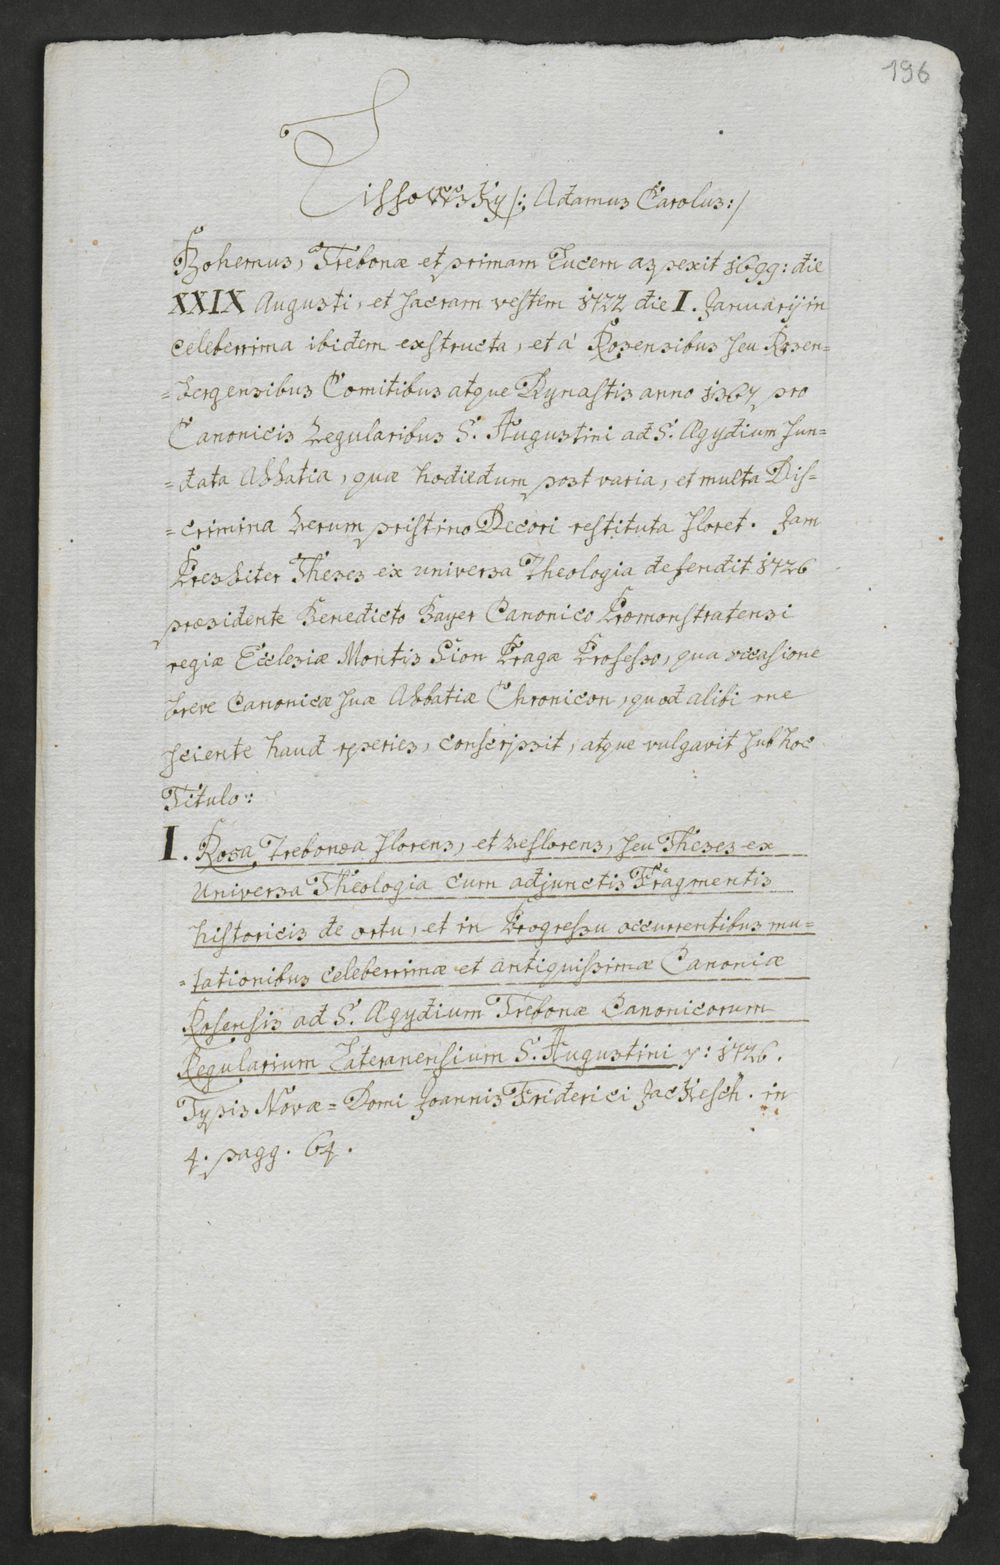 196
Lissowsky /: Adamus Carolus :/
Bohemus, Trebonæ et primam Lucem aspexit 1699: die
XXIX Augusti, et sacram vestem 1722 die I. Januarij in
celeberrima ibidem exstructa, et à Rosensibus seu Rosen=
=bergensibus Comitibus atque Dynastis anno 1367 pro
Canonicis Regularibus S. Augustini ad S. Ægydium fun=
=data Abbatia, quæ hodiedum post varia, et multa Dis=
=crimina rerum pristino Decori restituta floret. Jam
Presbiter Theses ex universa Theologia defendit 1726
præsidente Benedicto Bayer Canonico Præmonstratensi
regiæ Ecclesiæ Montis Sion Pragæ Professo, qua occasione
breve Canonicæ suæ Abbatiæ Chronicon, quod alibi me
sciente haud reperies, conscripsit, atque vulgavit sub hoc
Titulo:
I. Rosa Trebonea florens, et reflorens, seu Theses ex
Universa Theologia cum adjunctis Fragmentis
historicis de ortu, et in Progressu occurrentibus mu=
=tationibus celeberrimæ et antiquissimæ Canoniæ
Rosensis ad S. Ægydium Trebonæ Canonicorum
Regularium Lateranensium S. Augustini p: 1726.
Typis Novæ=Domi Joannis Friderici Jackesch. in
4. pagg. 64.